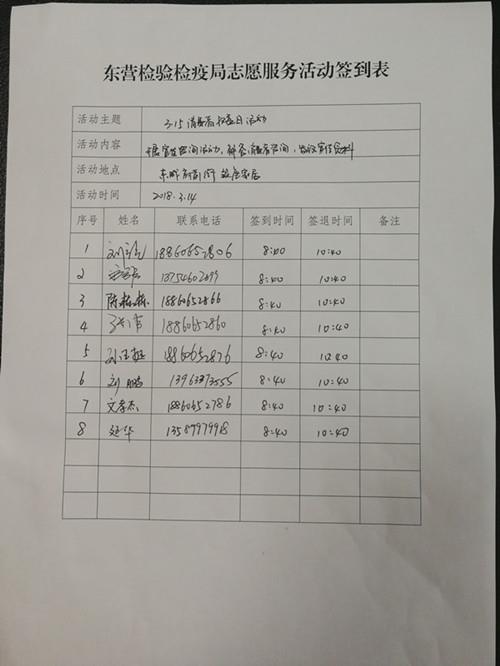 东营检验检疫局志愿服务活动签到表
活动主题 3.15消费者权益日活动
活动内容 开展宣传咨询活动,解答消费者咨询,发放宣传资料
活动地点
活动时间 2018.3.14
序号 姓名 联系电话 签到时间 签退时间 备注
1 18860652806 8:40 10:40
2 18754602699 8:40 10:40
3 陈森森 18860652866 8:40 10:40
4 18860652860 8:40 10:40
5 18860652876 8:40 10:40
6 刘鹏 13963373555 8:40 10:40
7 文孝杰 18860652786 8:40 10:40
8 延华 13589979918 8:40 10:40